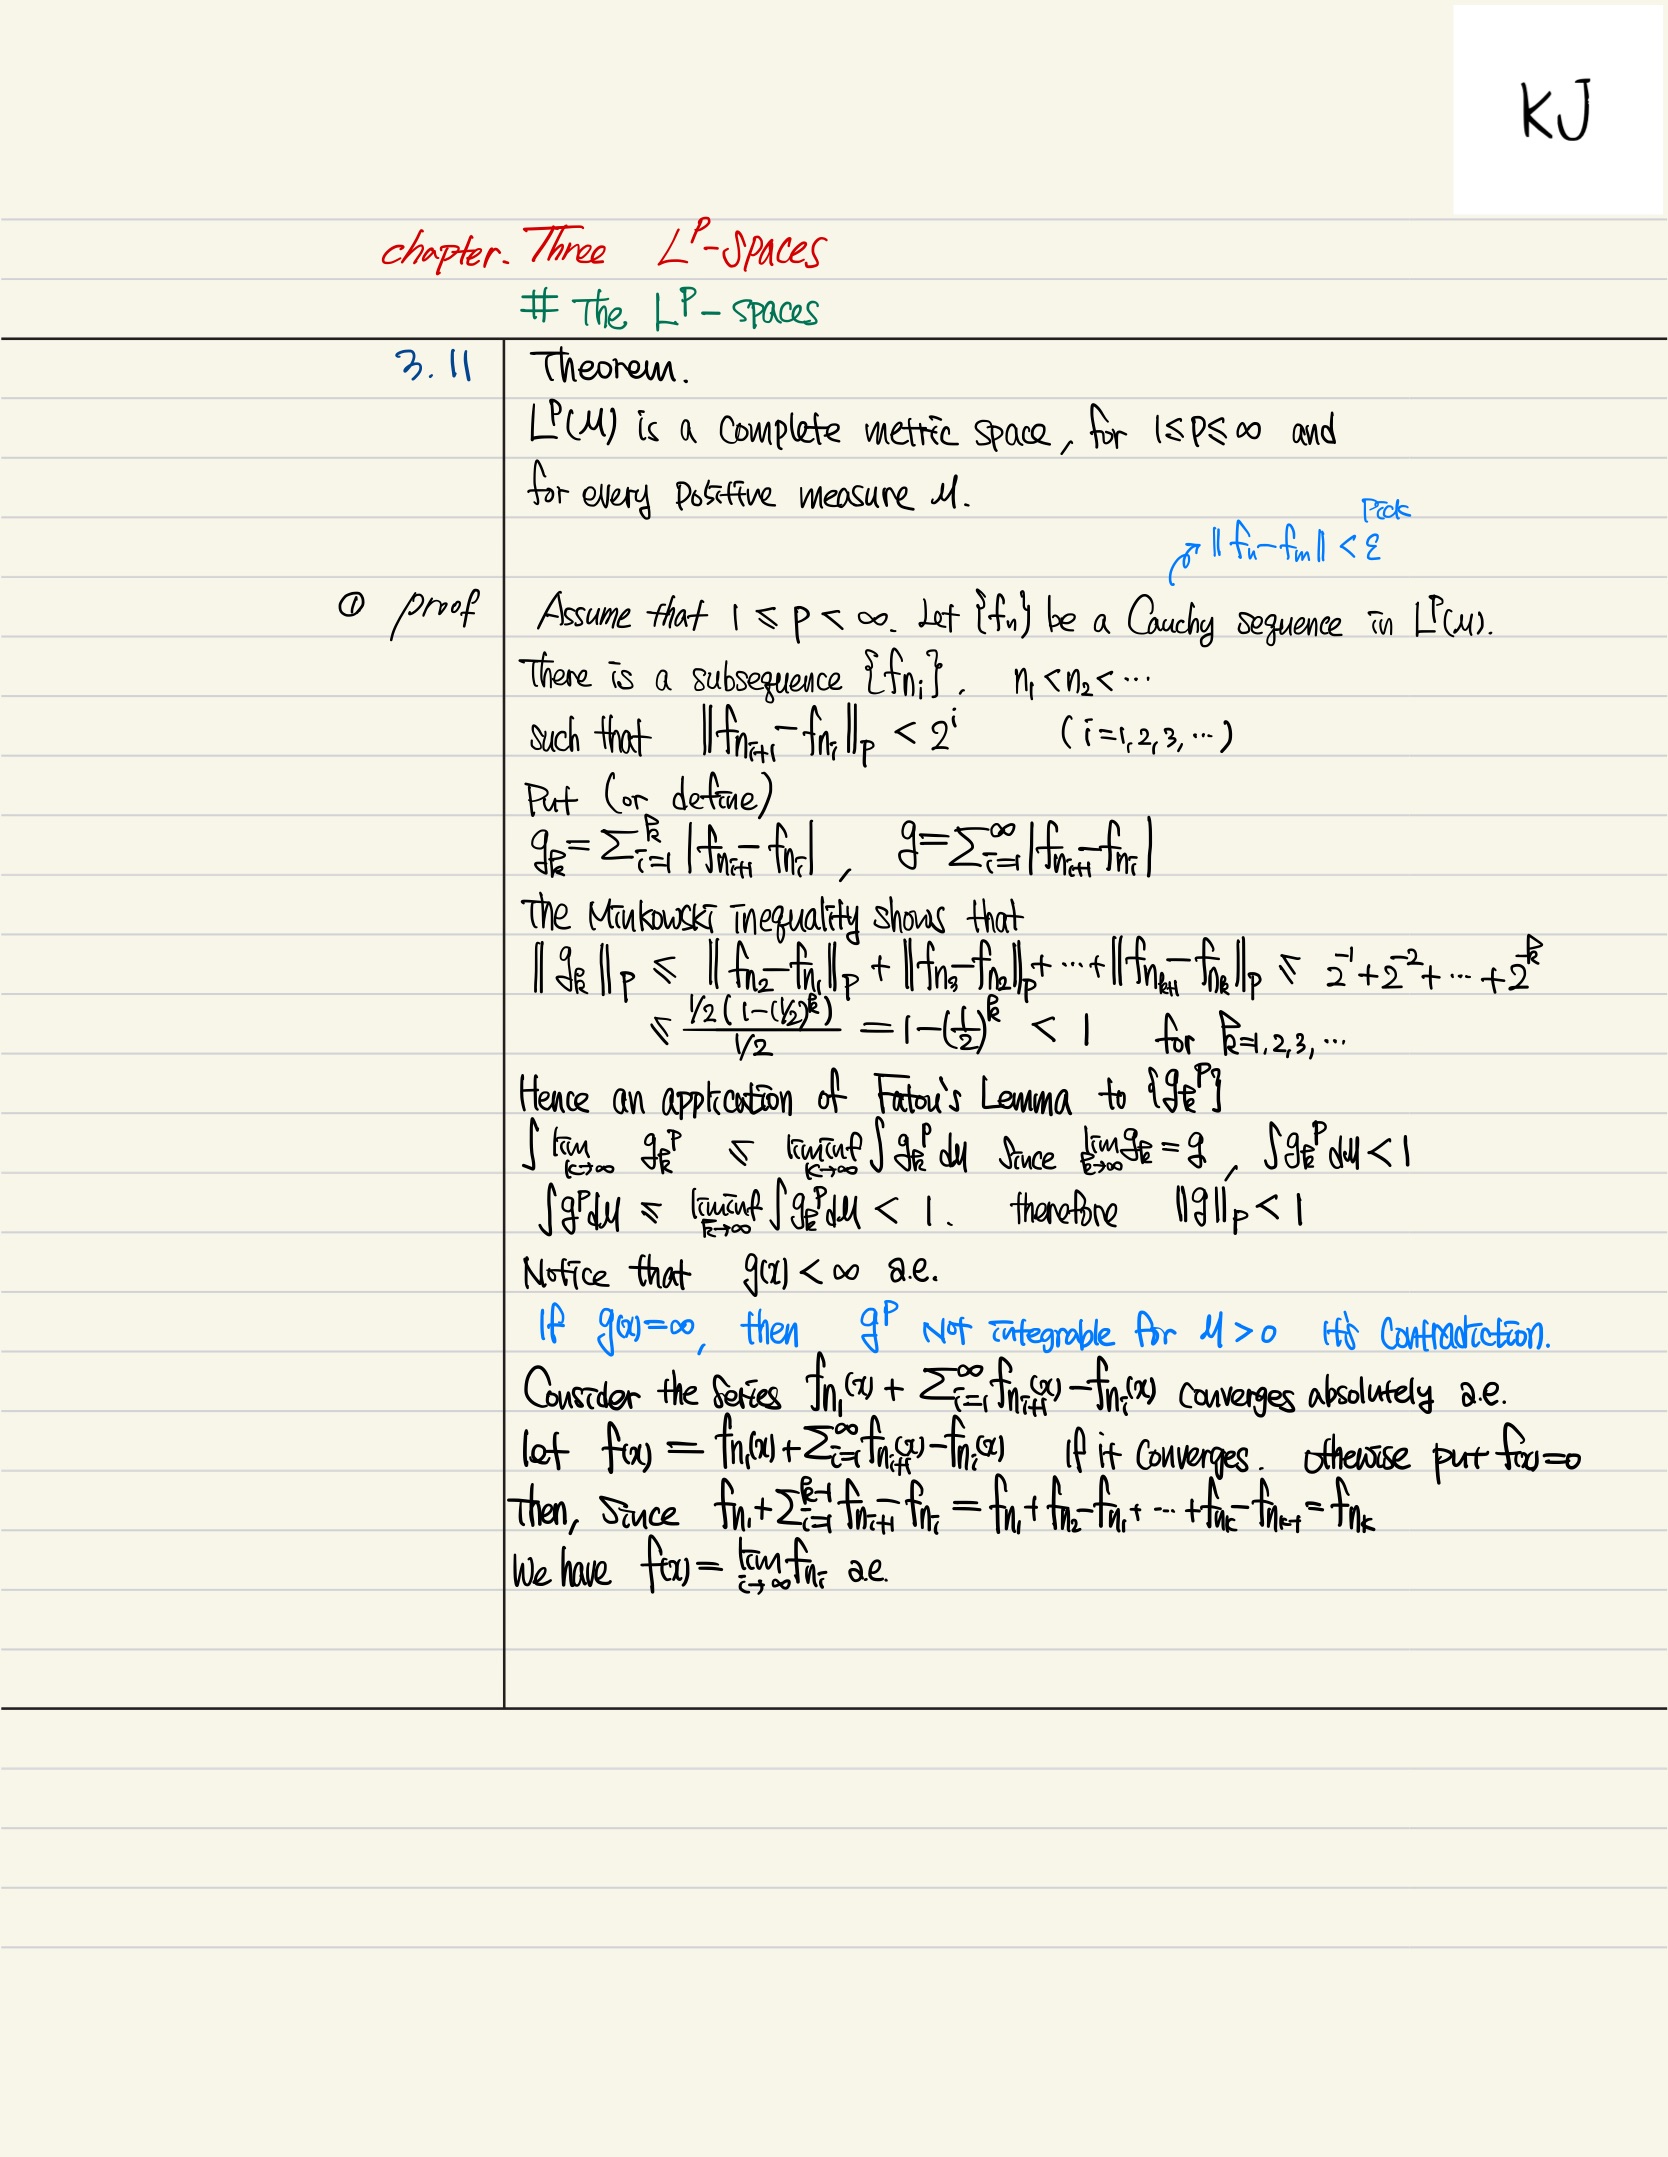 KJ
chapter. Three L^p-spaces
# The L^p-spaces
3.11 Theorem.
L^p(μ) is a complete metric space, for 1≤p≤∞ and
for every positive measure μ.
Pick
‖fn-fm‖<ε
① proof Assume that 1≤p<∞. Let {fn} be a Cauchy sequence in L^p(μ).
There is a subsequence {f_{n_i}}. n₁<n₂<⋯
such that ‖f_{n_{i+1}}-f_{n_i}‖_p < 2^i (i=1,2,3,⋯)
Put (or define)
g_k=∑_{i=1}^k |f_{n_{i+1}}-f_{n_i}|, g=∑_{i=1}^∞ |f_{n_{i+1}}-f_{n_i}|
The Minkowski inequality shows that
‖g_k‖_p ≤ ‖f_{n_2}-f_{n_1}‖_p + ‖f_{n_3}-f_{n_2}‖_p + ⋯ + ‖f_{n_{k+1}}-f_{n_k}‖_p ≤ 2^{-1}+2^{-2}+⋯+2^{-k}
≤ \frac{1/2(1-(1/2)^k)}{1/2} = 1-(\frac{1}{2})^k < 1 for k=1,2,3,⋯
Hence an application of Fatou's Lemma to {g_k^p}
∫ lim_{k→∞} g_k^p ≤ liminf_{k→∞} ∫ g_k^p dμ since lim_{k→∞} g_k = g, ∫ g_k^p dμ < 1
∫ g^p dμ ≤ liminf_{k→∞} ∫ g_k^p dμ < 1. therefore ‖g‖_p < 1
Notice that g(x)<∞ a.e.
If g(x)=∞, then g^p Not integrable for μ>0 it's contradiction.
Consider the series f_{n_1}(x) + ∑_{i=1}^∞ f_{n_{i+1}}(x) - f_{n_i}(x) converges absolutely a.e.
let f(x) = f_{n_1}(x) + ∑_{i=1}^∞ f_{n_{i+1}}(x) - f_{n_i}(x) If it converges. otherwise put f(x)=0
Then, since f_{n_1} + ∑_{i=1}^{k-1} f_{n_{i+1}} - f_{n_i} = f_{n_1} + f_{n_2} - f_{n_1} + ⋯ + f_{n_k} - f_{n_{k-1}} = f_{n_k}
We have f(x) = lim_{i→∞} f_{n_i} a.e.